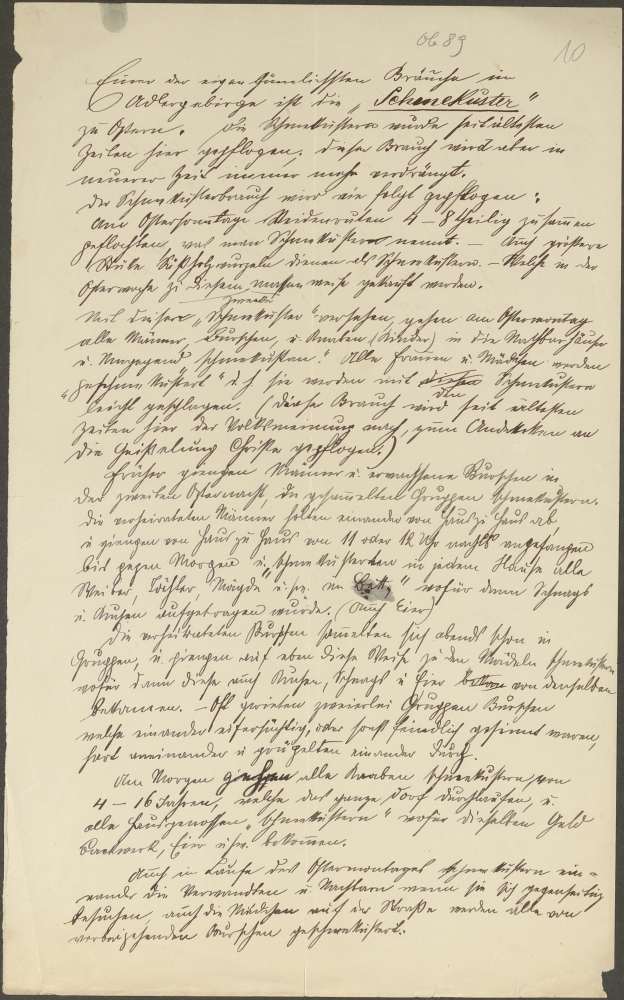 Ob 89
10
Einer der eigentümlichsten Bräuche im
Adlergebirge ist die „Schmekuster"
zu Ostern. Die Schmekustern wurde seit ältesten
Zeiten hier gepflogen, dieser Brauch wird aber in
neuerer Zeit immer mehr verdrängt.
Der Schmekusterbrauch wird wie folgt gepflogen:
Am Ostersonntage Weidenruten 4 – 8 theilig zusamen
geflochten, was man Schmekuster nennt. — Auch größere
Stücke Süßholzwurzeln dienen als Schmekustern. – Welche in der
Osterwoche zu diesem massenweise gekauft werden.
Zwecke
Mit dieser „Schmekuster" versehen, gehen am Ostermontag
alle Männer, Burschen, u. Knaben (Kinder) in die Nachbarhäuser
u. Umgegend schmekustern." Alle Frauen u. Mädchen werden
„geschmekustert" d. h. sie werden mit diesen Schmekustern
den
leicht geschlagen. (Dieser Brauch wird seit ältesten
Zeiten hier der Volksmeinung nach, zum Andenken an
die Geißelung Christi gepflogen.)
Früher giengen Männer u. erwachsene Burschen in
der zweiten Osternacht, in gesamelten Gruppen schmekustern.
Die verheirateten Männer holten einander von Haus zu Haus ab
u. giengen von Haus zu Haus von 11 oder 12 Uhr nachts angefangen
bis gegen Morgen u. „schmekusterten in jedem Hause alle
Weiber, Töchter, Mägde u.s.w. im Bett," wofür dann Schnaps
u. Kuchen aufgetragen wurde. (Auch Eier)
Die Burschen samelten sich abends schon in
Gruppen, u. giengen auf eben diese Weise zu den Maideln schmekustern
wofür dann diese auch Kuchen, Schnaps u. Eier von denselben
bekamen. – Oft gerieten zweierlei Gruppen Burschen
welche einander eifersüchtig, oder sonst feindlich gesinnt waren,
hart aneinander u. prügelten einander durch.
Am Morgen gehen alle Knaben schmekustern, von
4 – 16 Jahren, welche das ganze Dorf durchlaufen, u.
alle Hausgenossen „schmekustern" wofür dieselben Geld
Backwerk, Eier u.s.w. bekommen.
Auch im Laufe des Ostermontages schmekustern ein-
ander die Verwandten u. Nachbarn wenn sie sich gegenseitig
besuchen, auch die Mädchen auf der Straße werden alle von
vorbeigehenden Burschen geschmekustert.